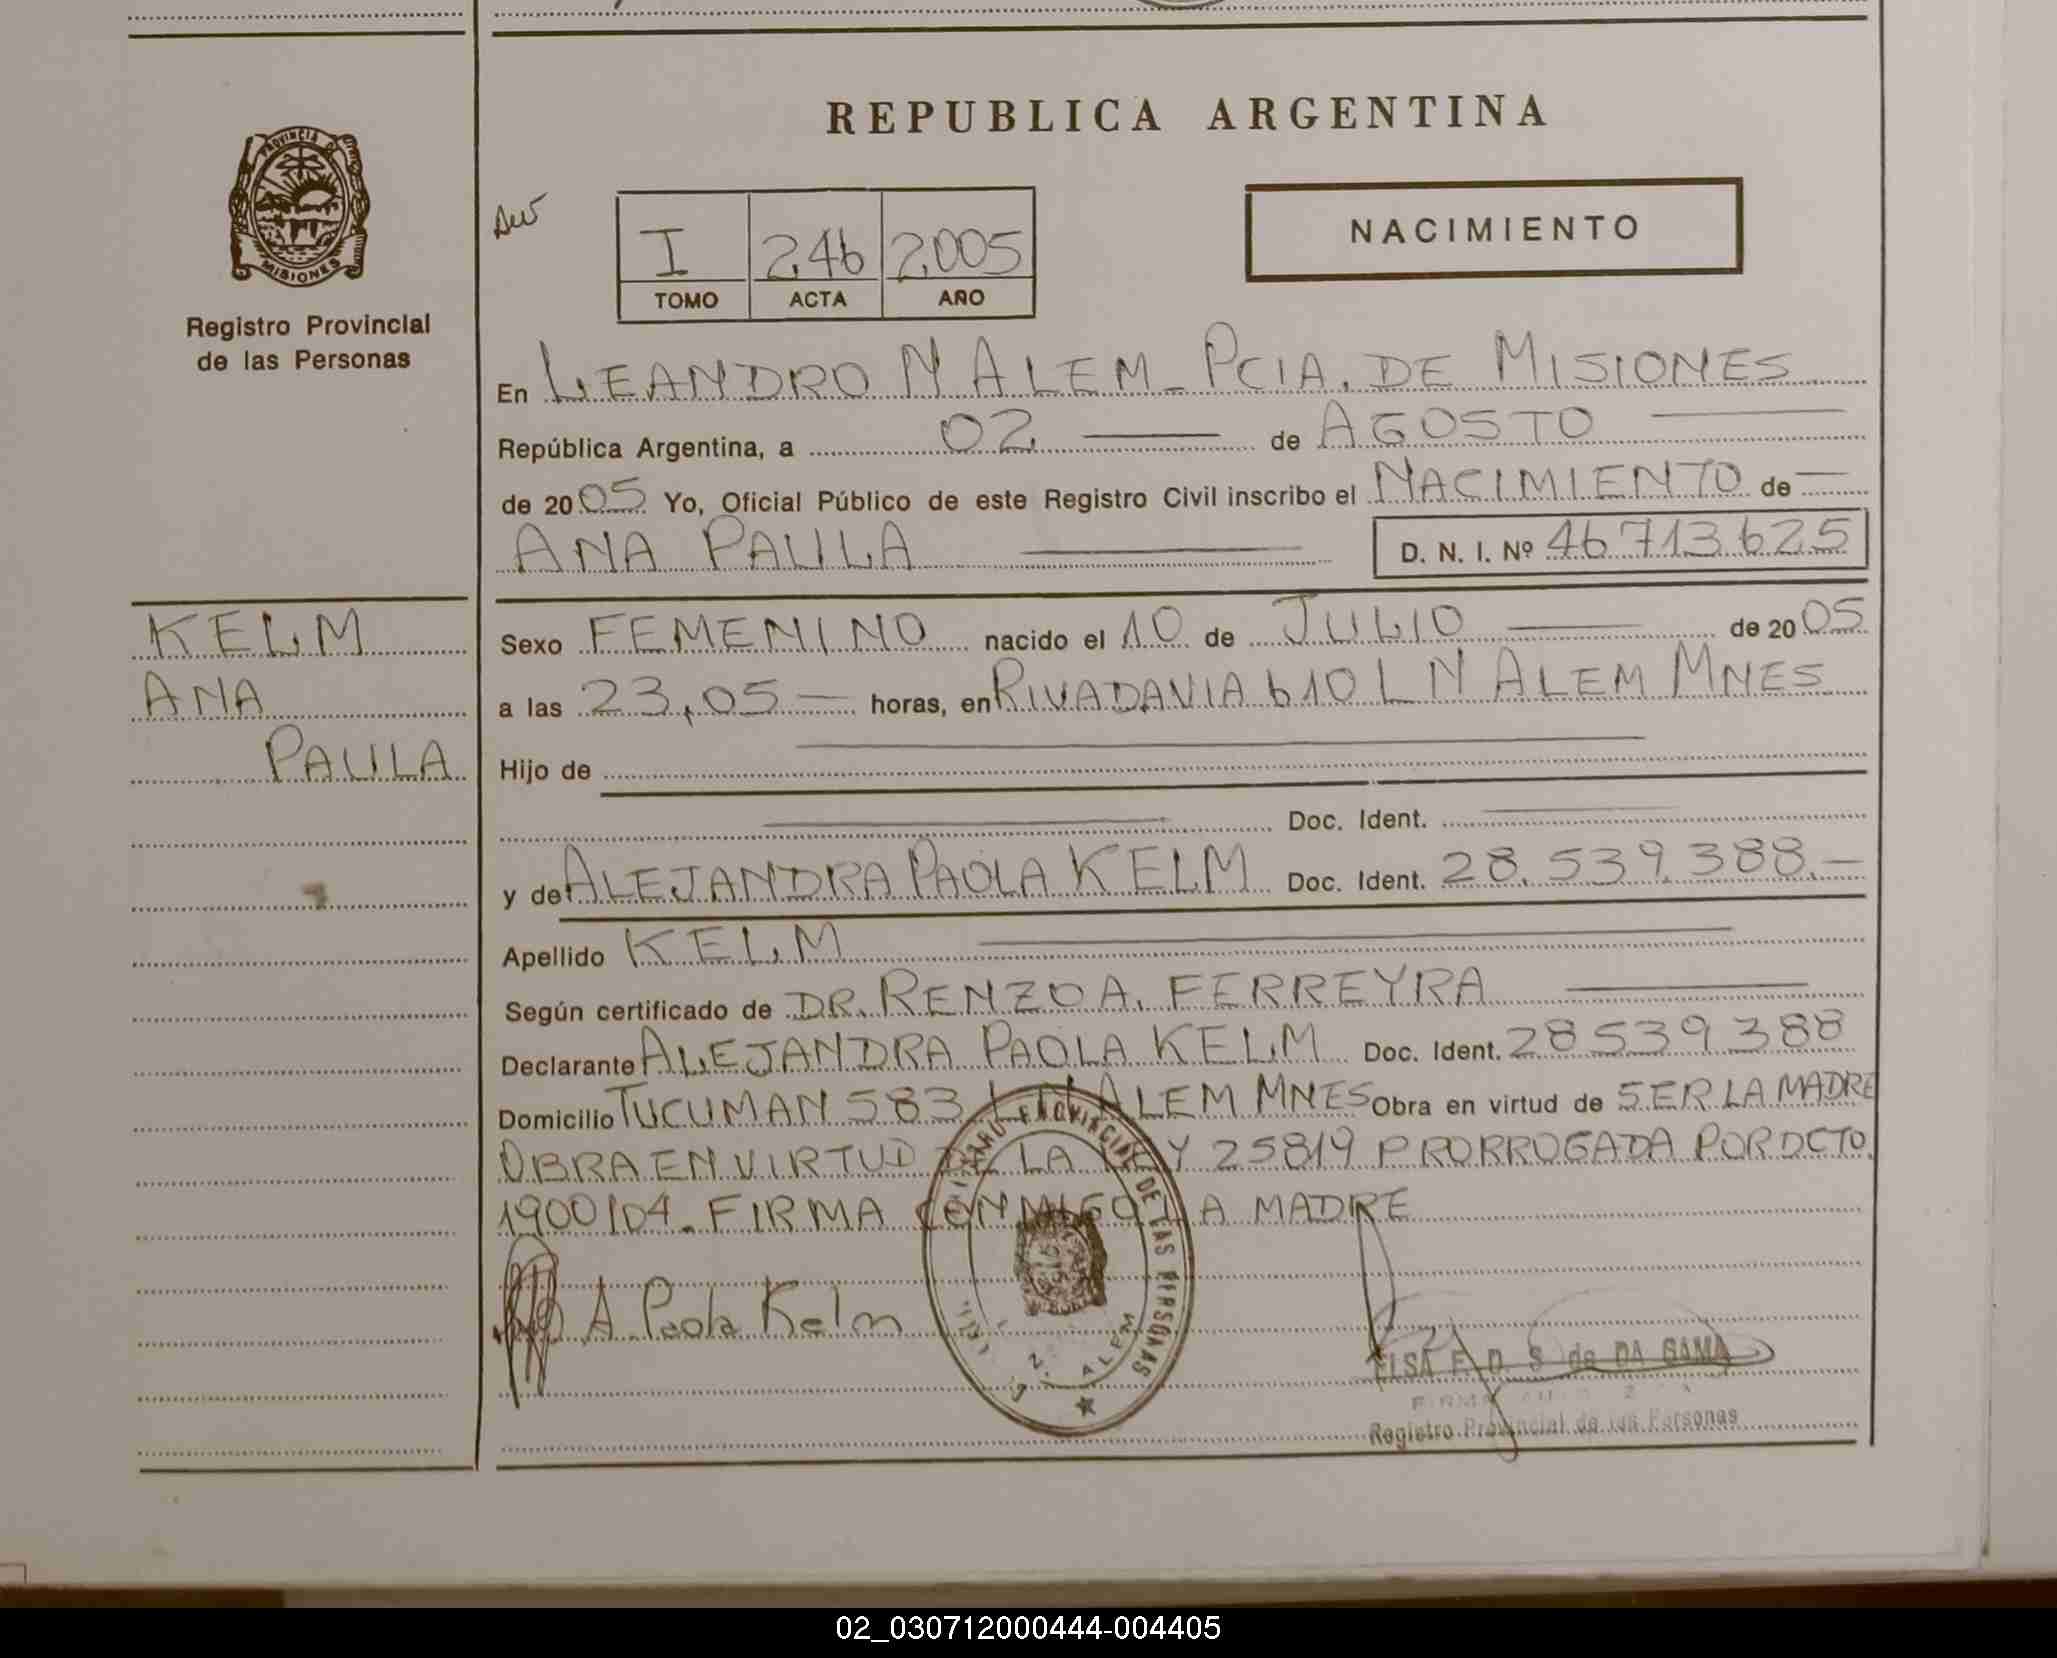 REPUBLICA ARGENTINA
PROVINCIA DE
MISIONES
Registro Provincial
de las Personas
I 246 2.005
TOMO ACTA AÑO
NACIMIENTO
En LEANDRO N ALEM - PCIA. DE MISIONES
República Argentina, a 02 de AGOSTO
de 2005 Yo, Oficial Público de este Registro Civil inscribo el NACIMIENTO de
ANA PAULA D. N. I. Nº 46 713 625
KELM
ANA
PAULA
Sexo FEMENINO nacido el 10 de JULIO de 2005
a las 23,05 horas, en RIVADAVIA 610 L N ALEM MNES
Hijo de
Doc. Ident.
y de ALEJANDRA PAOLA KELM Doc. Ident. 28.539.388.-
Apellido KELM
Según certificado de DR. RENZO A. FERREYRA
Declarante ALEJANDRA PAOLA KELM Doc. Ident. 28 539 388
Domicilio TUCUMAN 583 L N ALEM MNES Obra en virtud de SER LA MADRE
OBRA EN VIRTUD DE LA LEY 25819 PRORROGADA POR DCTO.
1900/04. FIRMA CONMIGO LA MADRE
A. Paola Kelm
PROVINCIAL DE LAS PERSONAS
ALEM
ELSA F. D. S de DA GAMA
Registro Provincial de las Personas
02_030712000444-004405